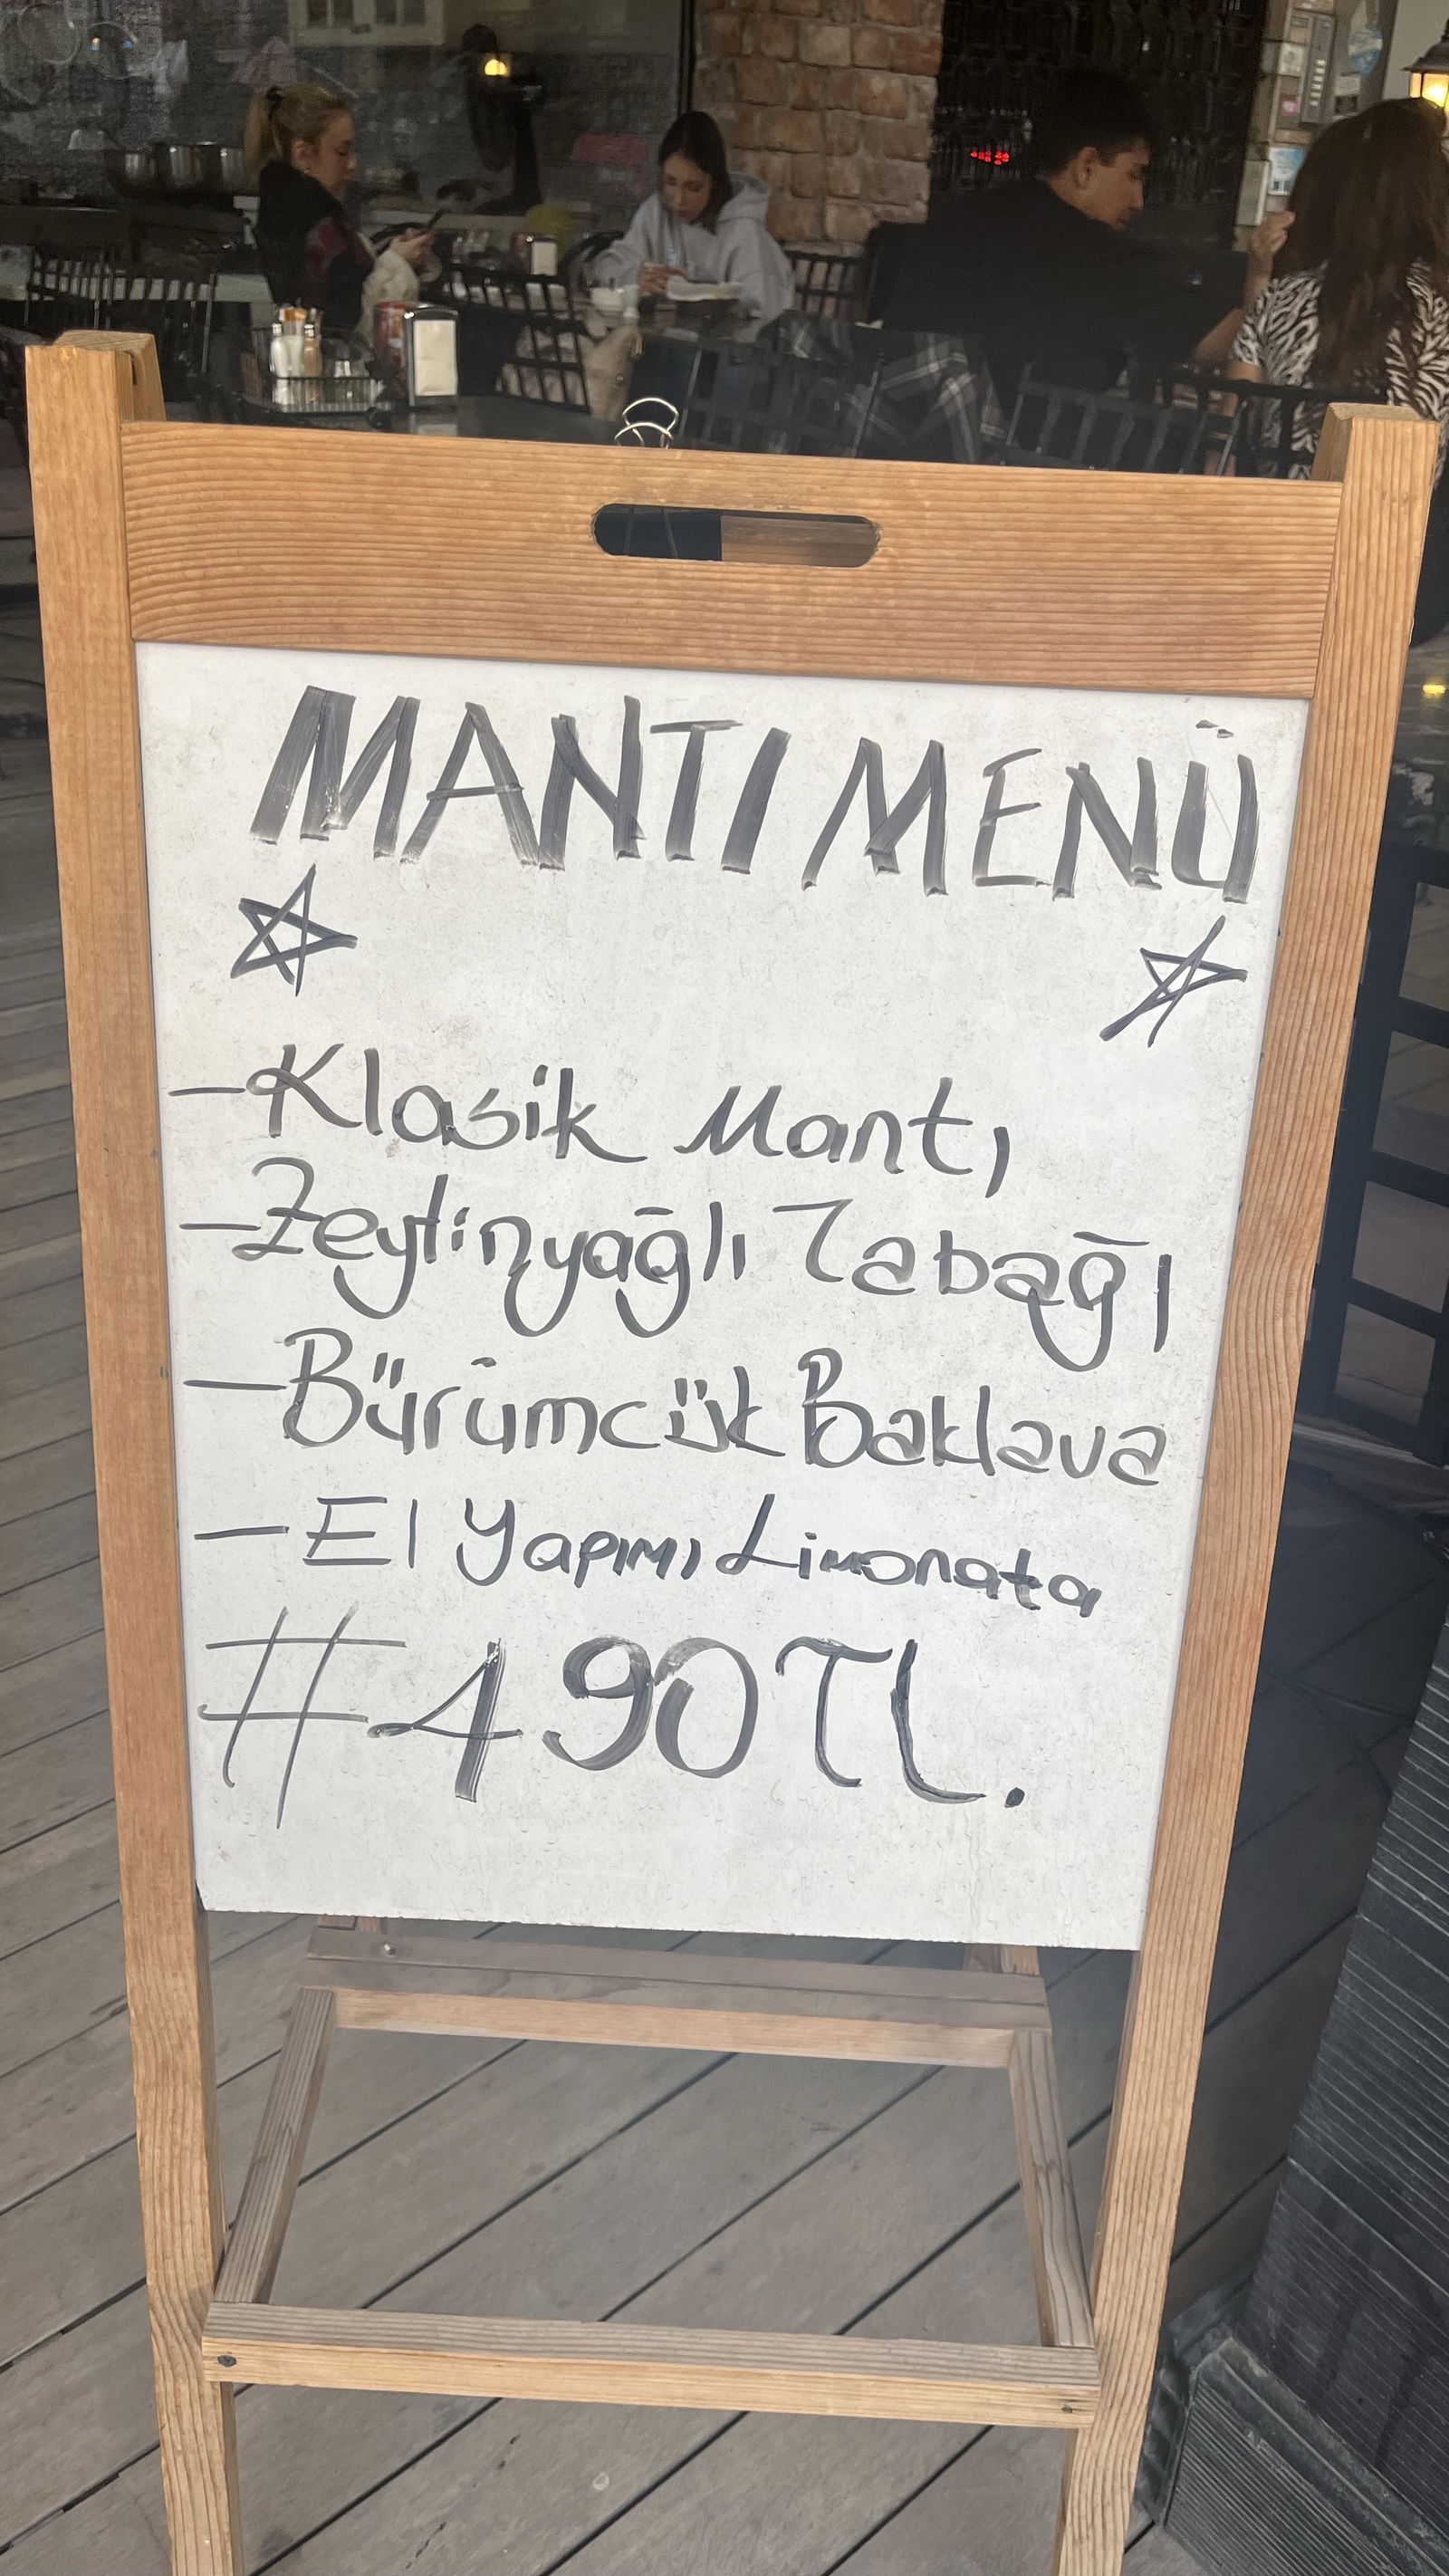 MANTI MENÜ
- Klasik Mantı
- Zeytinyağlı Tabağı
- Bürümcük Baklava
- El Yapımı Limonata
# 490 TL.